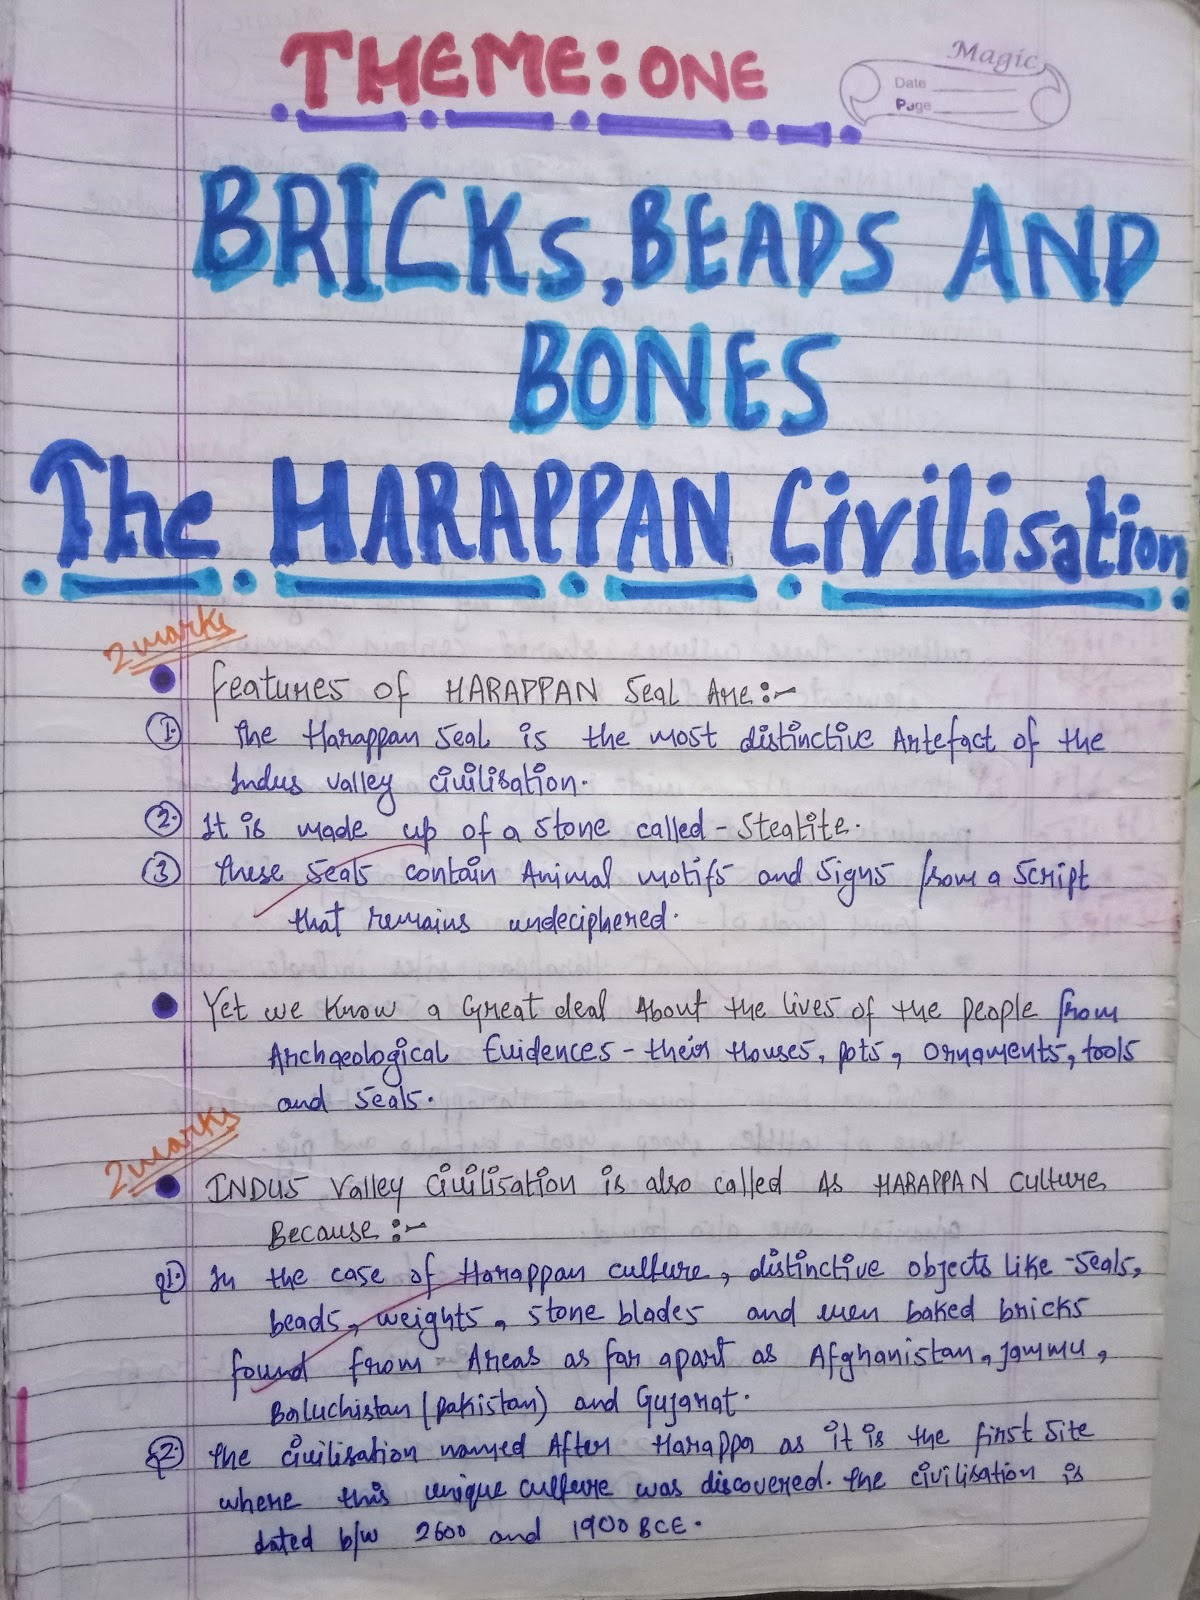 THEME: ONE
Magic
Date
Page
BRICKS, BEADS AND
BONES
The HARAPPAN Civilisation
2 marks
features of HARAPPAN Seal Are :-
1. The Harappan Seal is the most distinctive Artefact of the
Indus valley civilisation.
2. It is made up of a stone called - Steatite.
3 These Seals contain Animal motifs and Signs from a Script
that remains undeciphered.
Yet we Know a Great deal About the lives of the people from
Archaeological Evidences - their Houses, pots, ornaments, tools
and seals.
2 marks
INDUS Valley Civilisation is also called As HARAPPAN Culture
Because :-
1. In the case of Harappan culture, distinctive objects like - Seals,
beads, weights, stone blades and even baked bricks
found from Areas as far apart as Afghanistan, Jammu,
Baluchistan (pakistan) and Gujarat.
2. The civilisation named After Harappa as it is the first site
where this unique culture was discovered. The civilisation is
dated b/w 2600 and 1900 BCE.